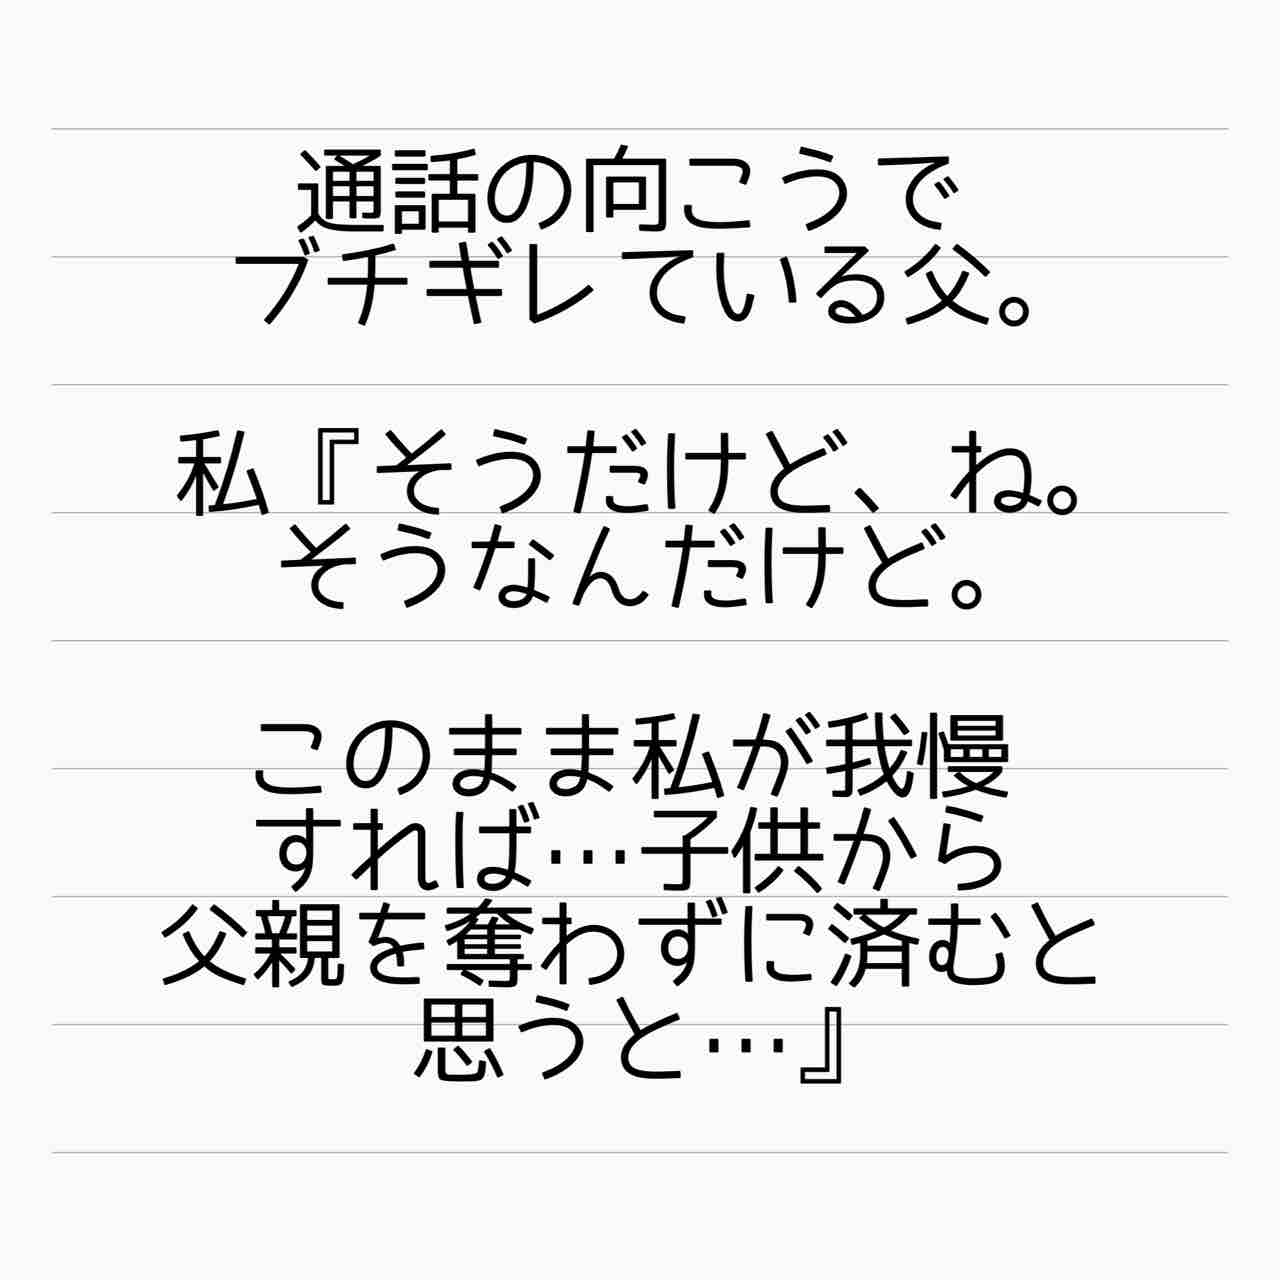 通話の向こうで
ブチギレている父。
私『そうだけど、ね。
そうなんだけど。
このまま私が我慢
すれば…子供から
父親を奪わずに済むと
思うと…』